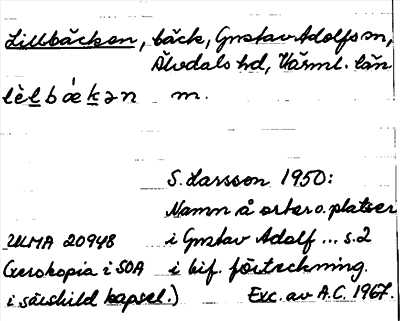 Lillbäcken, bäck, Gustav Adolfs sn,
Älvdals hd, Värml. län
lèl bǽkən m.
S. Larsson 1950:
Namn å orter o. platser
ULMA 20948 i Gustav Adolf ... s. 2
(Xerokopia i SOA i bif. förteckning.
i särskild kapsel.) Exc. av A.C. 1967.